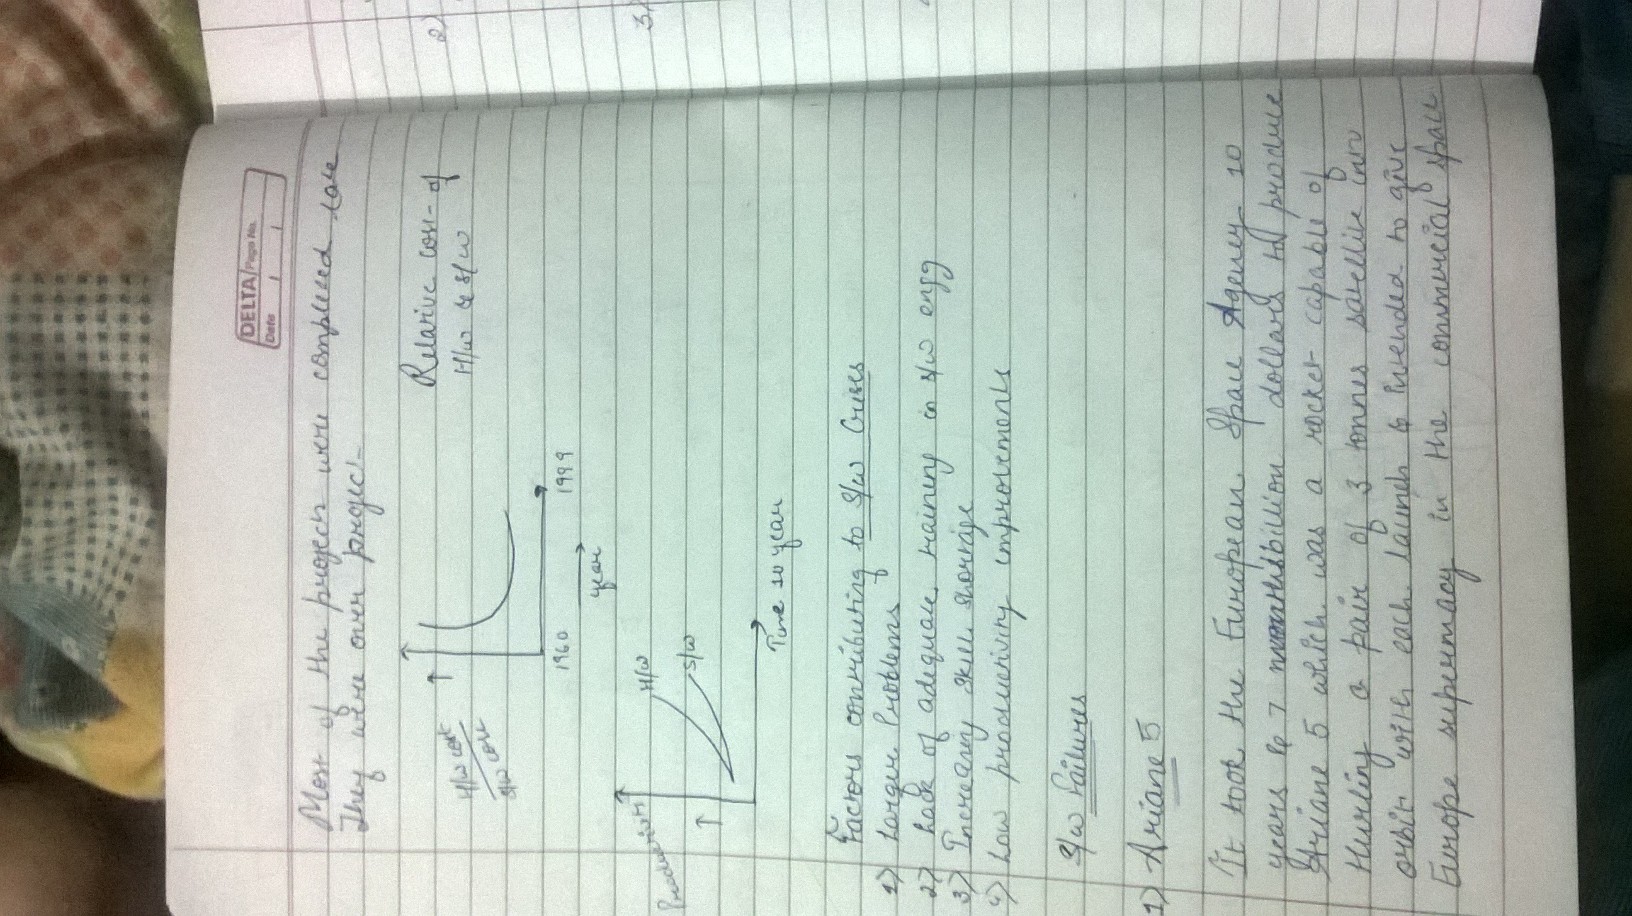 DELTA Page No.
Date / /
Most of the projects were completed late
They were over project.
Relative cost of
H/w & S/w
H/w cost
S/w cost
1960
1999
year
H/w
S/w
Time 20 year
Factors contributing to S/w Crises
1) Larger Problems
2) Lack of adequate training in s/w engg
3) Increasing skill shortage
4) Low productivity improvements
S/w Failures
1) Ariane 5
It took the European Space Agency 10
years & 7 billion dollars to produce
Ariane 5 which was a rocket capable of
Hurling a pair of 3 tonnes satellite into
orbit with each launch & intended to give
Europe supremacy in the commercial space
2)
3)